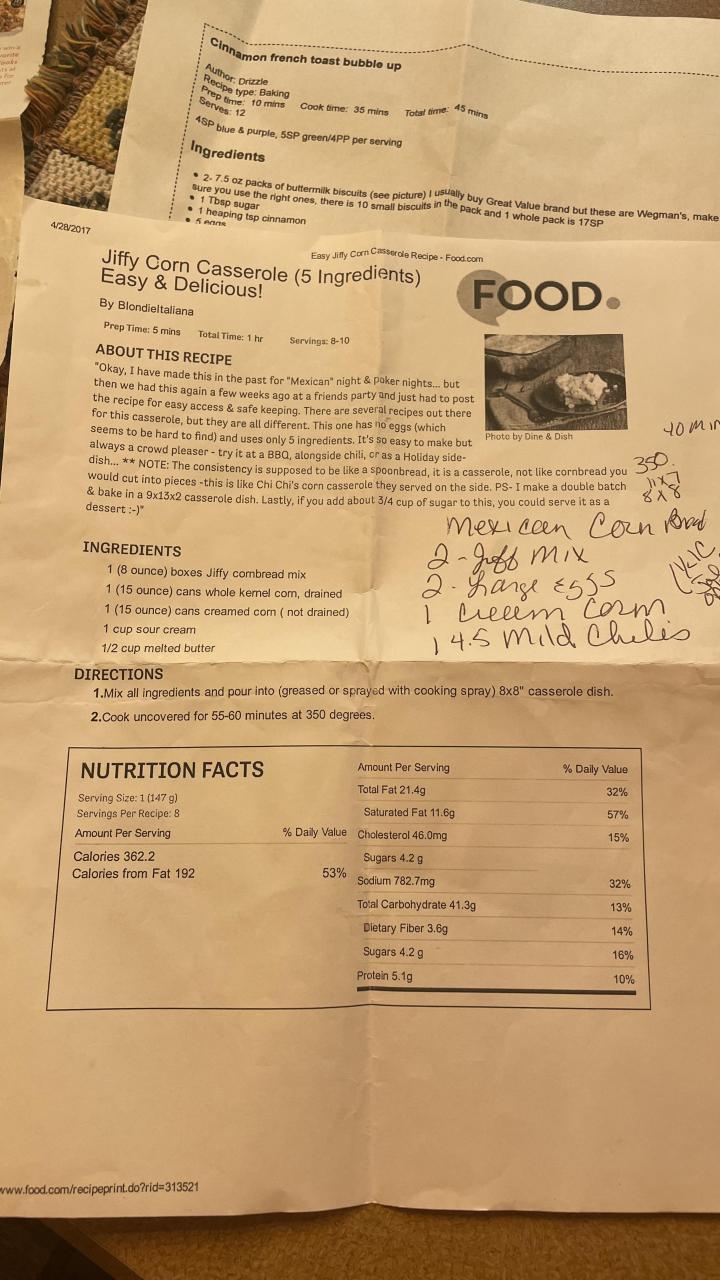 Cinnamon french toast bubble up
Author: Drizzle
Recipe type: Baking
Prep time: 10 mins Cook time: 35 mins Total time: 45 mins
Serves: 12
4SP blue & purple, 5SP green/4PP per serving
Ingredients
• 2- 7.5 oz packs of buttermilk biscuits (see picture) I usually buy Great Value brand but these are Wegman's, make
sure you use the right ones, there is 10 small biscuits in the pack and 1 whole pack is 17SP
• 1 Tbsp sugar
• 1 heaping tsp cinnamon
• 5 eggs
4/28/2017
Easy Jiffy Corn Casserole Recipe - Food.com
Jiffy Corn Casserole (5 Ingredients)
Easy & Delicious!
FOOD.
By BlondieItaliana
Prep Time: 5 mins Total Time: 1 hr Servings: 8-10
ABOUT THIS RECIPE
"Okay, I have made this in the past for "Mexican" night & poker nights... but
then we had this again a few weeks ago at a friends party and just had to post
the recipe for easy access & safe keeping. There are several recipes out there
for this casserole, but they are all different. This one has no eggs (which
seems to be hard to find) and uses only 5 ingredients. It's so easy to make but
always a crowd pleaser - try it at a BBQ, alongside chili, or as a Holiday side-
dish... ** NOTE: The consistency is supposed to be like a spoonbread, it is a casserole, not like cornbread you
would cut into pieces -this is like Chi Chi's corn casserole they served on the side. PS- I make a double batch
& bake in a 9x13x2 casserole dish. Lastly, if you add about 3/4 cup of sugar to this, you could serve it as a
dessert :-)"
Photo by Dine & Dish
40 Min
350.
11x7
8x8
Mexican Corn Bread
2-Jiff Mix
2-Large Eggs
1 Creem Corn
1 4.5 Mild Chelis
INGREDIENTS
1 (8 ounce) boxes Jiffy cornbread mix
1 (15 ounce) cans whole kernel corn, drained
1 (15 ounce) cans creamed corn ( not drained)
1 cup sour cream
1/2 cup melted butter
DIRECTIONS
1.Mix all ingredients and pour into (greased or sprayed with cooking spray) 8x8" casserole dish.
2.Cook uncovered for 55-60 minutes at 350 degrees.
NUTRITION FACTS
Serving Size: 1 (147 g)
Servings Per Recipe: 8
Amount Per Serving % Daily Value
Calories 362.2
Calories from Fat 192 53%
Amount Per Serving % Daily Value
Total Fat 21.4g 32%
Saturated Fat 11.6g 57%
Cholesterol 46.0mg 15%
Sugars 4.2 g
Sodium 782.7mg 32%
Total Carbohydrate 41.3g 13%
Dietary Fiber 3.6g 14%
Sugars 4.2 g 16%
Protein 5.1g 10%
www.food.com/recipeprint.do?rid=313521